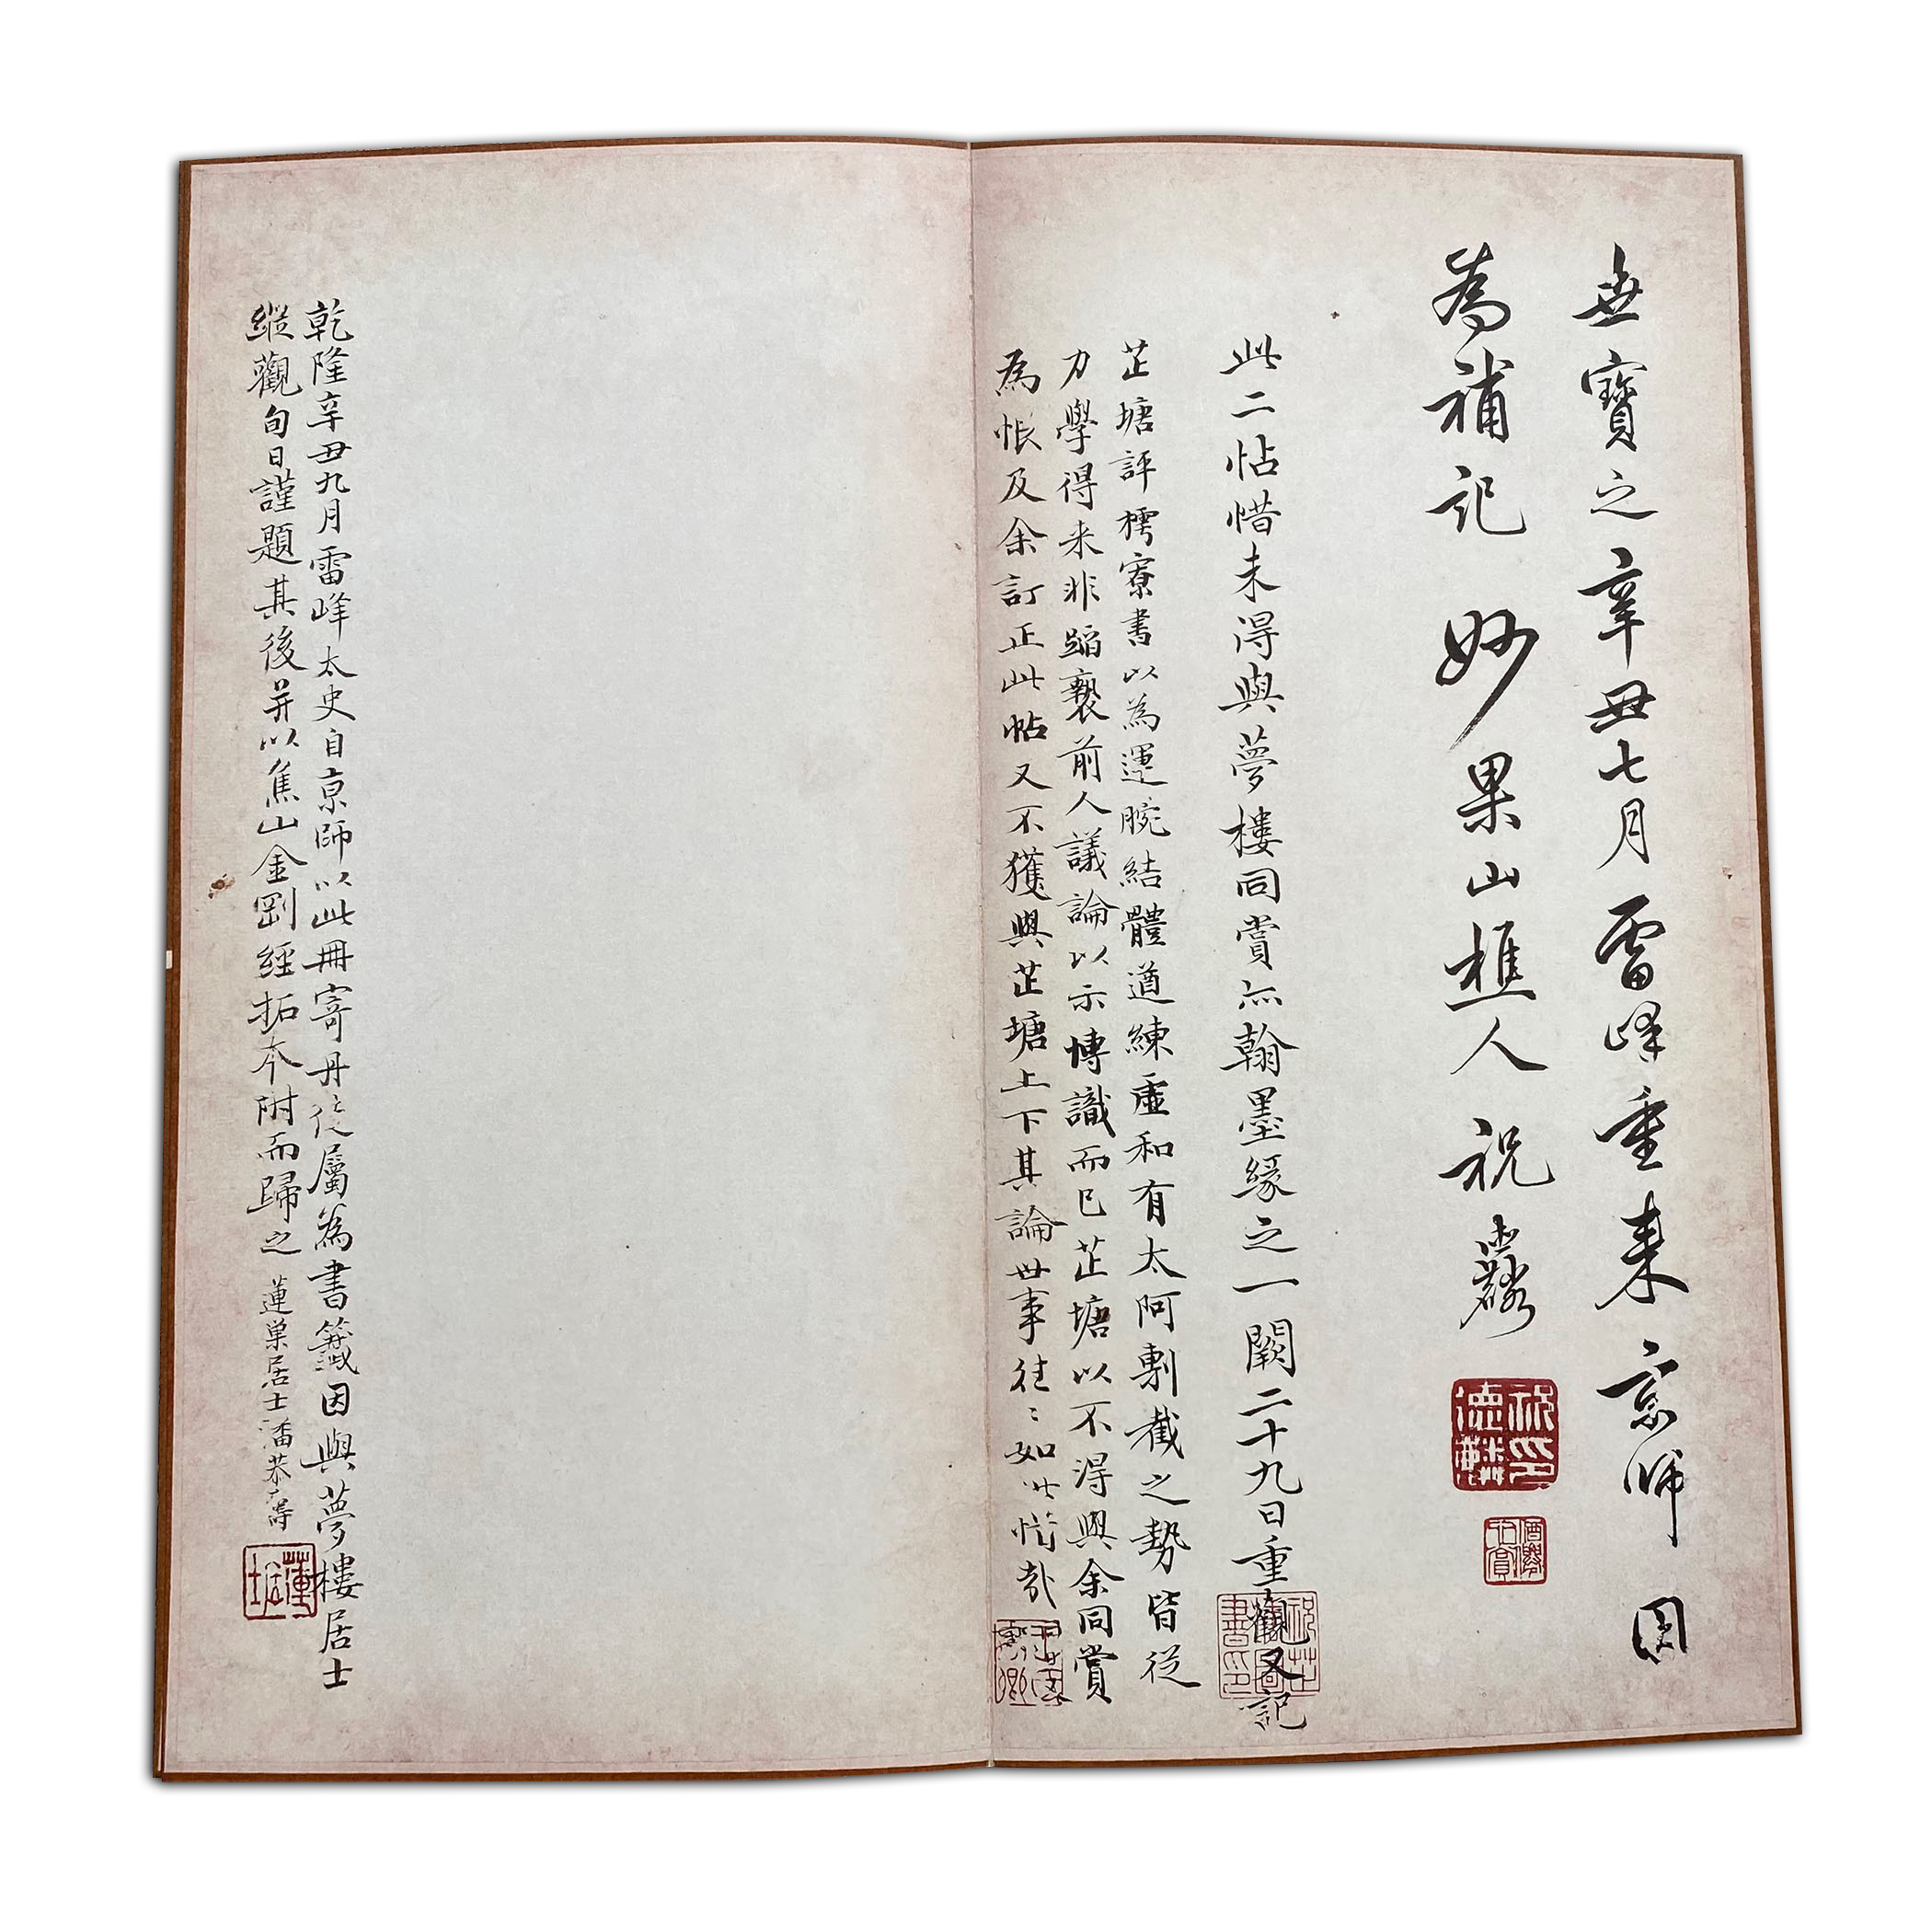 無寶之辛丑七月雷峰重来京師因
為補記 妙果山樵人祝德麟
此二帖惜未得與夢樓同賞亦翰墨緣之一闕二十九日重觀又記
芷塘評樗寮書以為運腕結體遒練虛和有太阿剸截之勢皆從
力學得来非蹈襲前人議論以示博識而已芷塘以不得與余同賞
為悵及余訂正此帖又不獲與芷塘上下其論世事往〻如此惜哉
乾隆辛丑九月雷峰太史自京師以此冊寄丹徒屬為書籤因與夢樓居士
縱觀旬日謹題其後并以焦山金剛經拓本附而歸之 蓮巢居士潘恭壽
祝印德麟